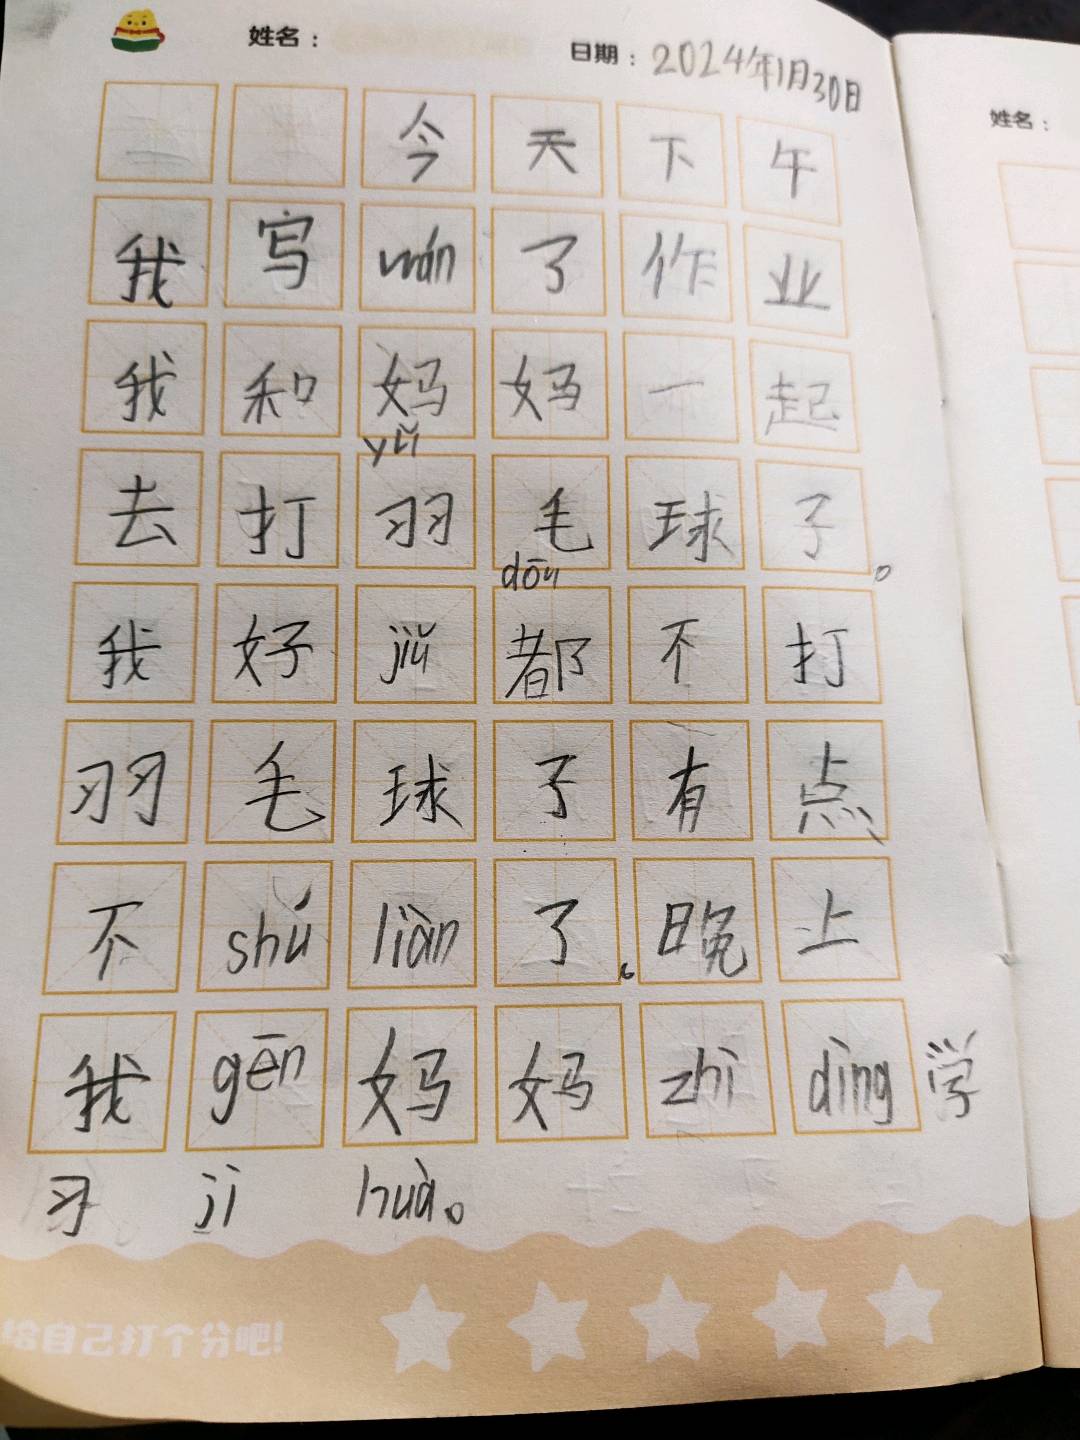 姓名：
日期：2024年1月30日
姓名：
今天下午
我写wán了作业
我和妈妈一起
yǔ
去打羽毛球子。
dōu
我好jiǔ都不打
羽毛球子有点
不shú liàn了。晚上
我gēn妈妈zhì dìng学
习jì huà。
给自己打个分吧！